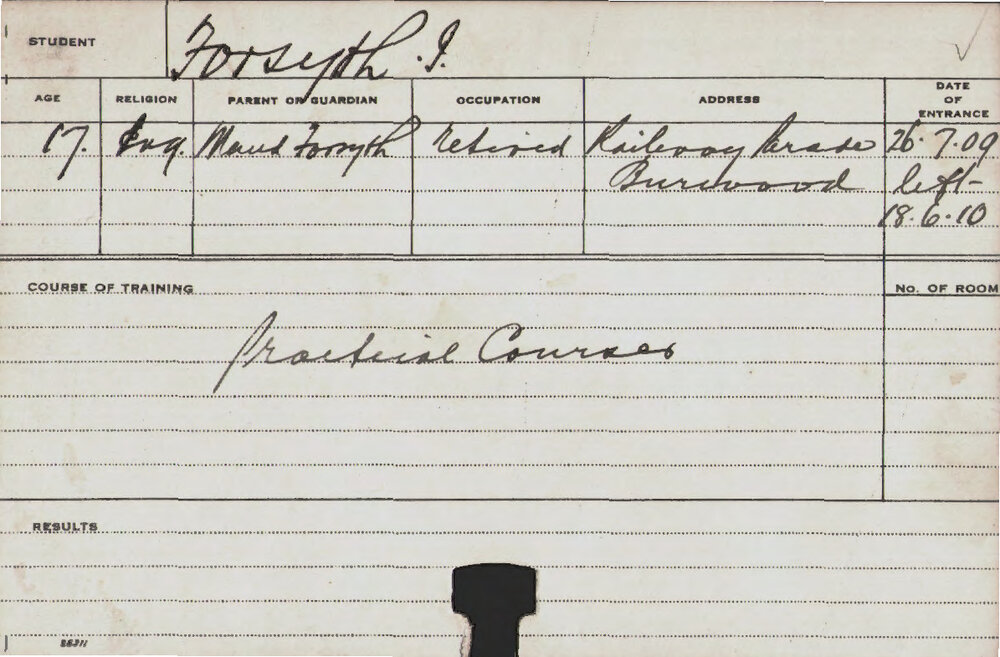 STUDENT Forsyth. I.
AGE RELIGION PARENT OR GUARDIAN OCCUPATION ADDRESS DATE OF ENTRANCE
17. Eng. Maud Forsyth retired Railway Parade 26.7.09
Burwood left-
18.6.10
COURSE OF TRAINING No. OF ROOM
Practical Courses
RESULTS